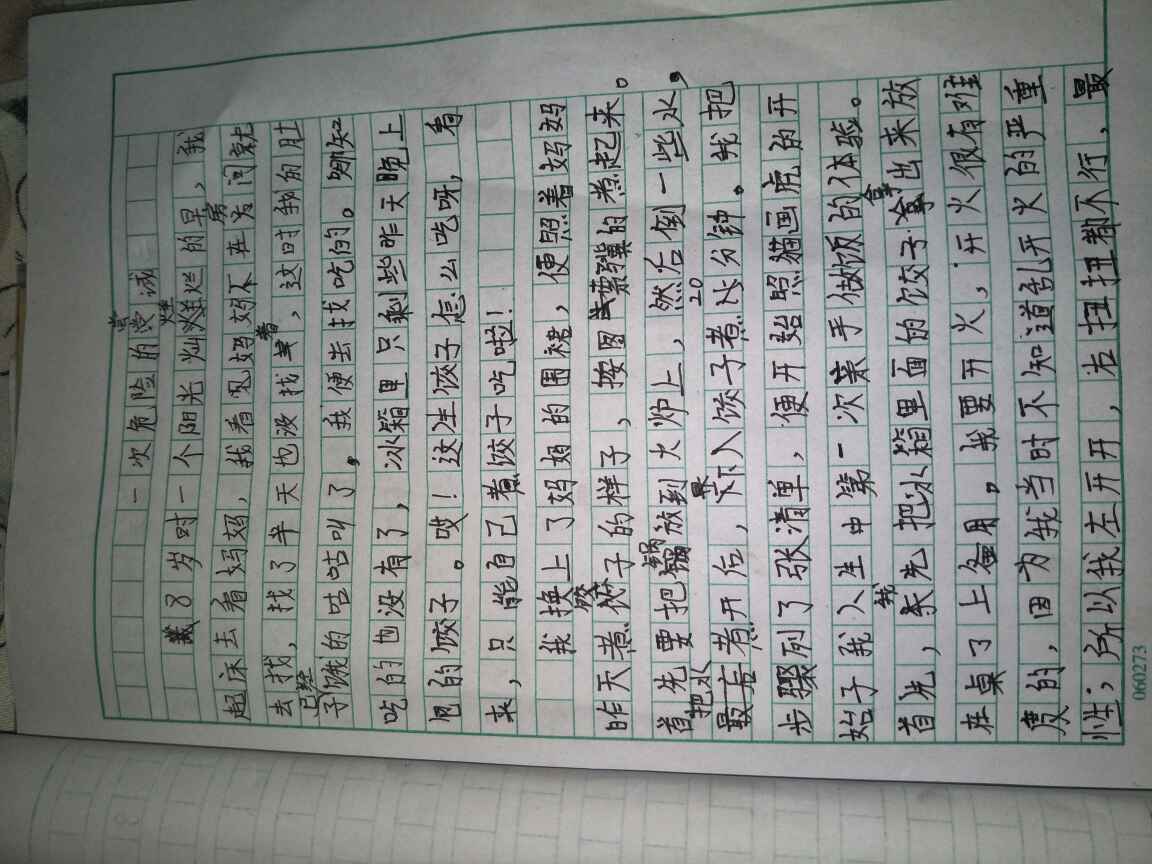 一次危险的尝试
8岁时一个阳光灿烂的早,我
起床去看妈妈,我看见妈妈不在房间就
去找,找了半天也没找着,这时我的肚
子已经饿的咕咕叫了。我便去找吃的。哪知
吃的也没有了,冰箱里只剩些昨天晚上
包的饺子。哎!这生饺子怎么吃呀,看
来,只能自己煮饺子吃啦!
我换上了妈妈的围裙,便照着妈妈
昨天煮饺子的样子,按图索骥的煮起来。
首先要把锅放到火炉上,然后倒一些水,
把水煮开后,下入饺子煮20分钟。我把
步骤列了张清单,便开始照猫画虎的开
始了我人生中第一次亲手做饭的体验。
首先,我先把冰箱里面的饺子拿出来放
在桌子上备用。我要开火,开火很有难
度的,因为我当时不知道乱开火的严重
性;所以我左开开,右扭扭都不行,最
060273